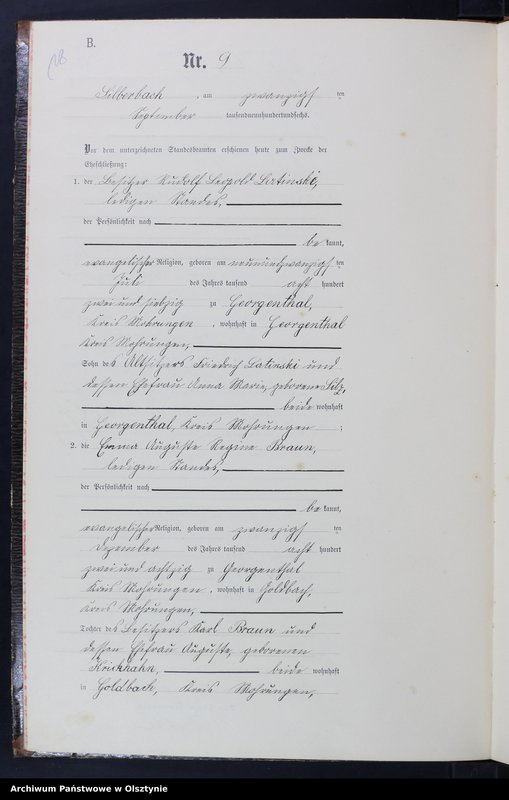 B.
Nr. 9
Silberbach, am zwanzigsten
September tausendneunhundertundsechs.
Vor dem unterzeichneten Standesbeamten erschienen heute zum Zwecke der
Eheschließung:
1. der Besitzer Rudolf Leopold Latinski,
ledigen Standes,
der Persönlichkeit nach
bekannt,
evangelischer Religion, geboren am neunundzwanzigsten
Juli des Jahres tausend achthundert
zweiundsiebzig zu Georgenthal,
Kreis Mohrungen, wohnhaft in Georgenthal
Kreis Mohrungen,
Sohn des Altsitzers Friedrich Latinski und
dessen Ehefrau Anna Marie, geborene
beide wohnhaft
in Georgenthal, Kreis Mohrungen;
2. die Emma Auguste Regine Braun,
ledigen Standes,
der Persönlichkeit nach
bekannt,
evangelischer Religion, geboren am zwanzigsten
Dezember des Jahres tausend achthundert
zweiundachtzig zu Georgenthal
Kreis Mohrungen, wohnhaft in Goldbach,
Kreis Mohrungen,
Tochter des Besitzers Karl Braun und
dessen Ehefrau Auguste, geborenen
beide wohnhaft
in Goldbach, Kreis Mohrungen,
Archiwum Państwowe w Olsztynie